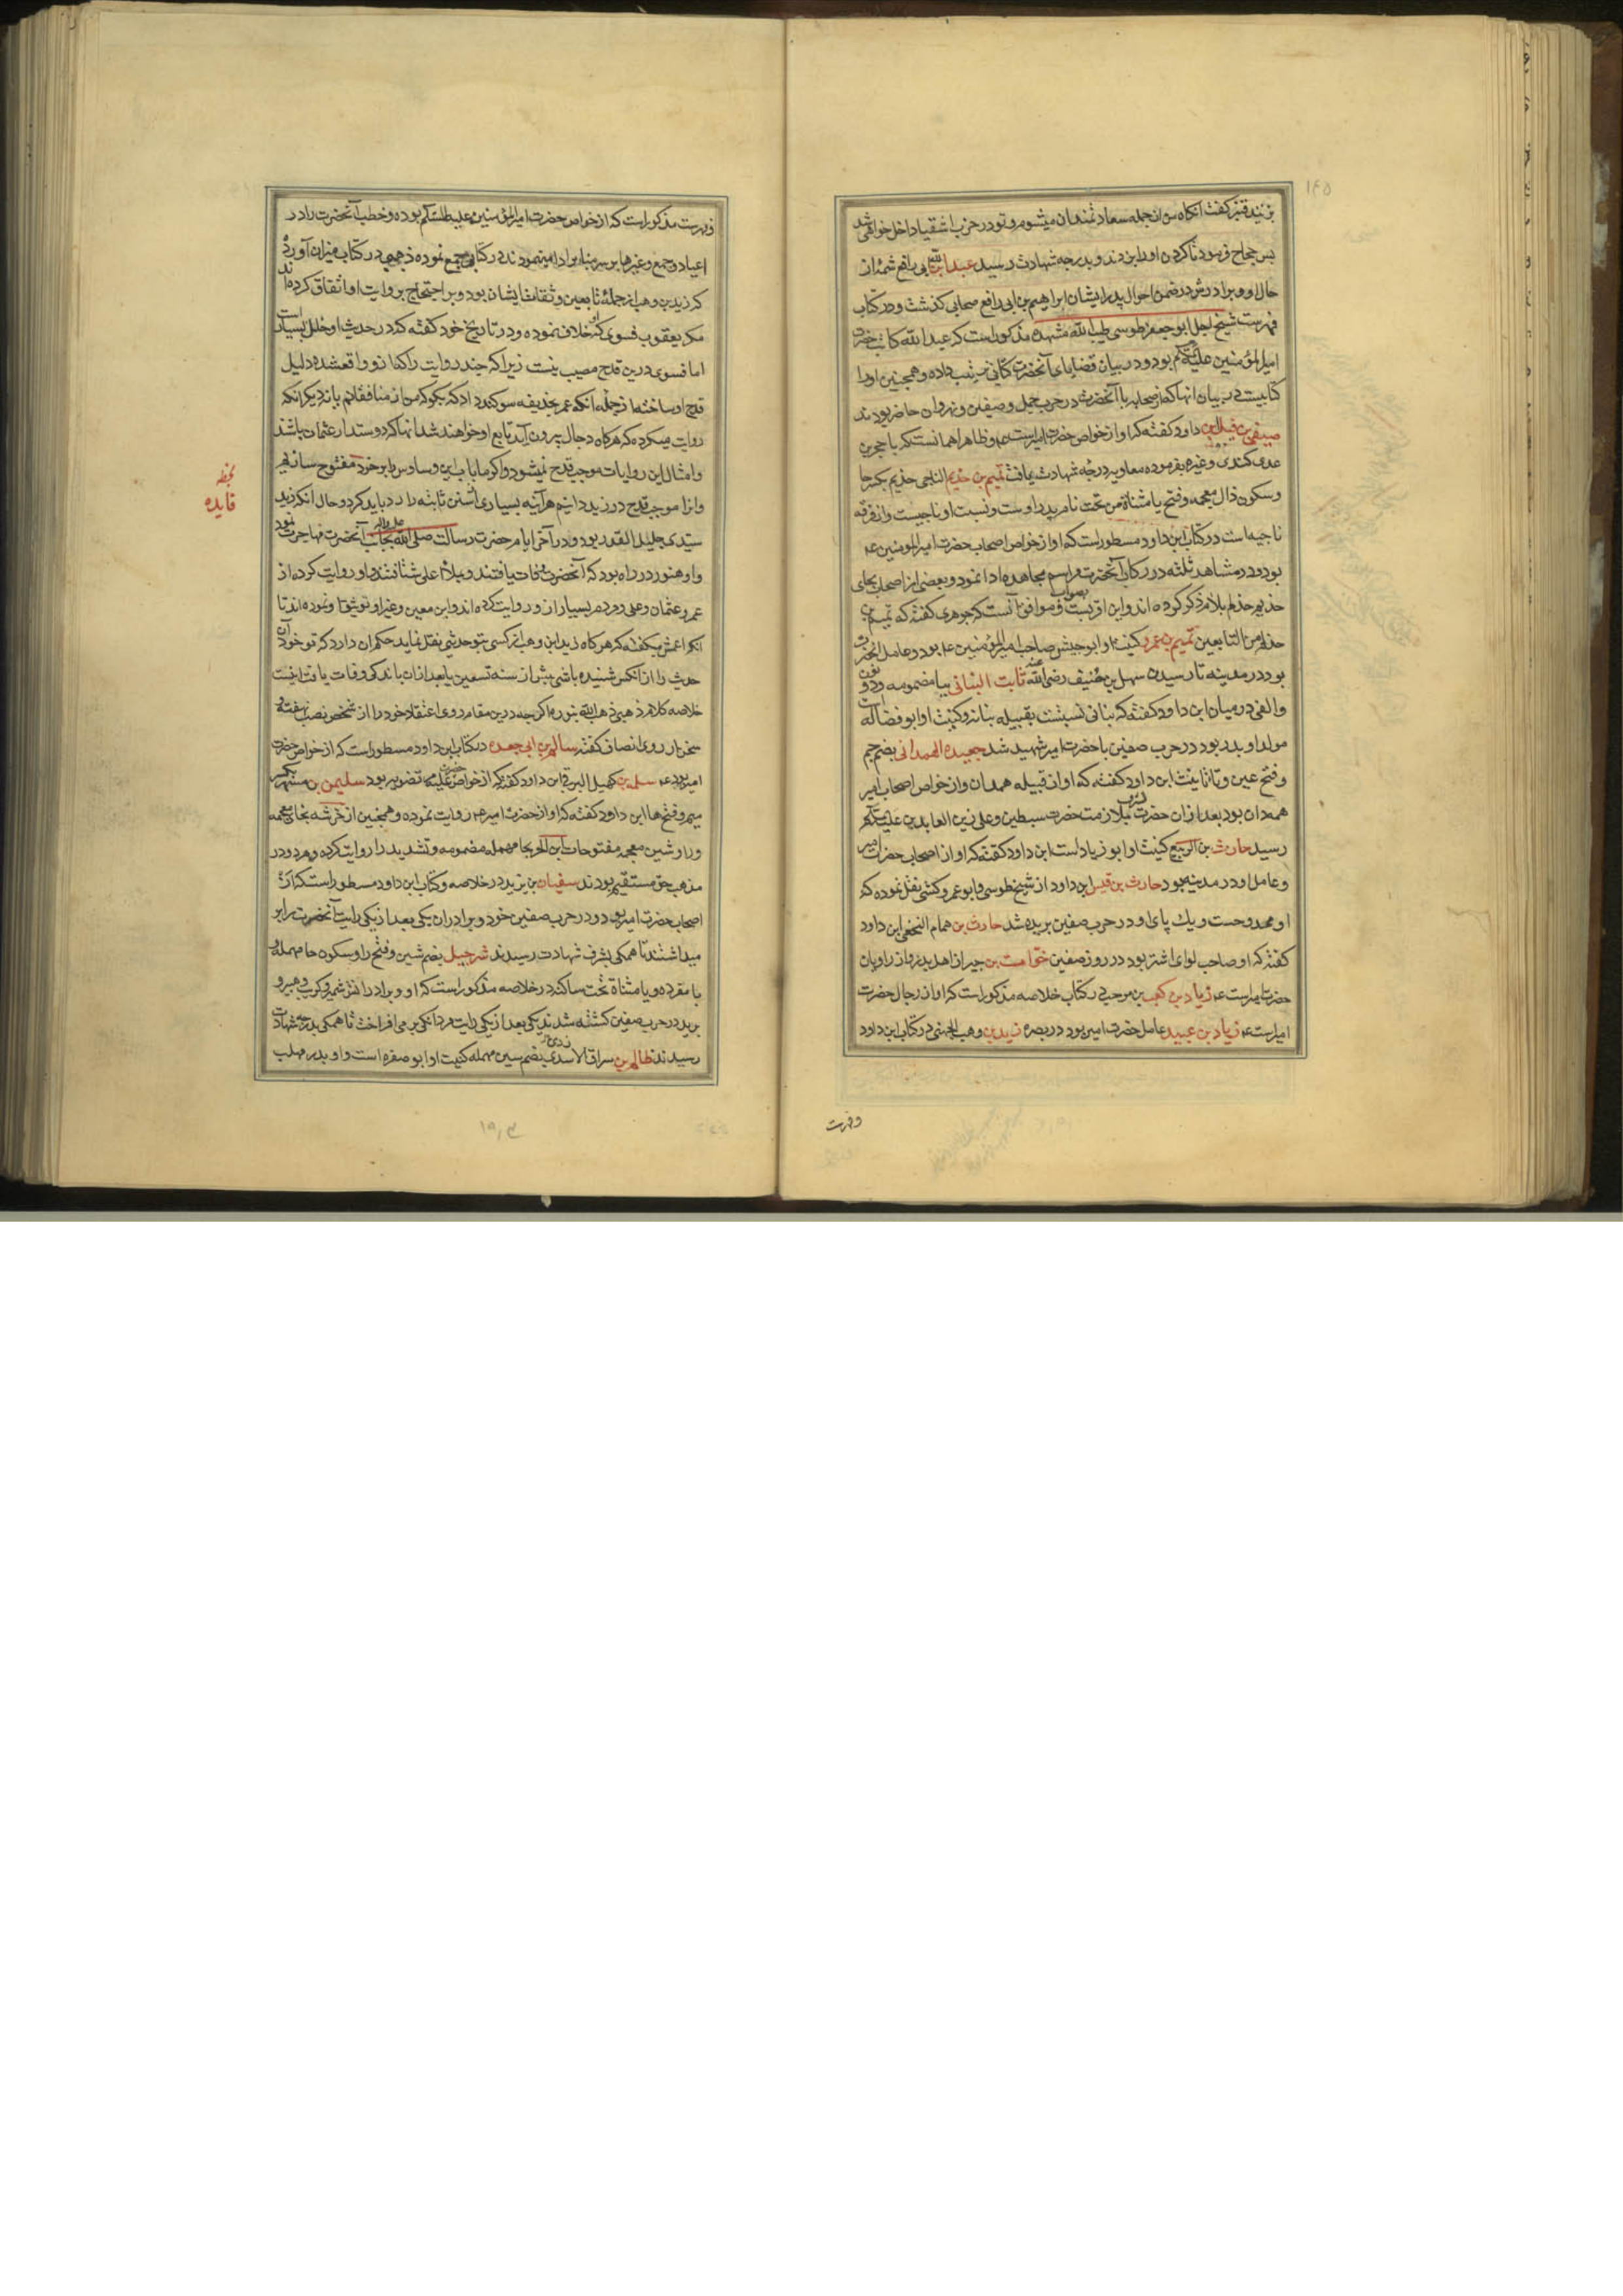 ۱۴۵
بزنید قنبر گفت آنگاه من از جمله سعادتمندان میشوم و تو در حزب اشقیا داخل خواهی شد
پس حجاج فرمود تا گردن او را بزدند و بدرجه شهادت رسید عبید الله بن ابی رافع شمهٔ از
حال او و برادرش در ضمن احوال پدر ایشان ابراهیم بن ابی رافع صحابی گذشت و در کتاب
فهرست شیخ اجل ابو جعفر طوسی طیب الله مشهده مذکور است که عبید الله کاتب حضرت
امیر المؤمنین علیه السلم بود و در بیان قضایای آنحضرت کتابی ترتیب داده و همچنین او را
کتابیست در بیان آنها که از صحابه با آنحضرت در حرب جمل و صفین و نهروان حاضر بودند
صیفی بن فسیل ابن داود گفته که او از خواص حضرت امیر است و ظاهرا همانست که با حجر بن
عدی کندی و غیره بفرموده معاویه درجه شهادت یافت تمیم بن حذیم الناجی حذیم بکسر حا
و سکون ذال معجمه و فتح یا مثناة من تحت نام پدر اوست و نسبت او ناجیست و از فرقه
ناجیه است در کتاب ابن داود مسطور است که او از خواص اصحاب حضرت امیر المومنین ع
بود و در مشاهد ثلثه در رکاب آنحضرت مراسم مجاهده ادا نمود و بعضی از اصحاب بجای
حذیم حذلم بلام ذکر کرده اند و این اقربست بصواب و موافق آنست که جوهری گفته که تمیم بن
حذلم من التابعین تمیم بن عمرو کنیت او ابو جیش صاحب امیر المؤمنین ع بود و عامل آنحضرت
بود در مدینه تا رسیدن سهل بن حنیف رضی الله عنه ثابت البنانی ببا مضمومه و دو نون
و الفی در میان ابن داود گفته که بنانی نسبتست بقبیله بنانه و کنیت او ابو فضاله است
مولد او بدر بود در حرب صفین با حضرت امیر شهید شد جعیده الهمدانی بضم جیم
و فتح عین و تا تانیث ابن داود گفته که او از قبیله همدان و از خواص اصحاب امیر
همدان بود بعد از آن حضرت بشرف ملازمت حضرت سبطین و علی زین العابدین علیهم السلم
رسید حارث بن الربیع کنیت او ابو زیاد است ابن داود گفته که او از اصحاب حضرت امیر
و عامل او در مدینه بود حارث بن قیس ابن داود از شیخ طوسی و ابو عمرو کشی نقل نموده که
او ممدوحست و یک پای او در حرب صفین بریده شد حارث بن همام النخعی ابن داود
گفته که او صاحب لوای اشتر بود در روز صفین خوات بن جبیر از اهل بدر و از راویان
حضرت امیر است ع زیاد بن کعب بن مرحب در کتاب خلاصه مذکور است که او از رجال حضرت
امیر است ع زیاد بن عبید عامل حضرت امیر بود در بصره زید بن وهب الجهنی در کتاب ابن داود
و فهرست
فهرست مذکور است که از خواص حضرت امیر المؤمنین علیه السلم بوده و خطب آنحضرت را در
اعیاد و جمع و غیرها بر سر منابر ادا مینمودند در کتابی جمع نموده ذهبی در کتاب میزان آورده
که زید بن وهب از جملهٔ تابعین و ثقات ایشان بود و بر احتجاج بروایت او اتفاق کرده اند
مگر یعقوب فسوی که خلاف نموده و در تاریخ خود گفته که در حدیث او خلل بسیار است
اما فسوی درین قدح مصیب نیست زیرا که چند روایت را که از او واقع شده دلیل
قدح او ساخته از جمله آنکه عمر بحذیفه سوگند داد که بگو که من از منافقانم یا نه دیگر آنکه
روایت میکرده که هرگاه دجال بیرون آید تابع او خواهند شد آنها که دوستدار عثمان باشند
و امثال این روایات موجب قدح نمیشود و اگر ما باب این وساوس را بر خود مفتوح سازیم
و آنرا موجب قدح در زید دانیم هر آئینه بسیاری از سنن ثابته را رد باید کرد و حال آنکه زید
سیدی جلیل القدر بود و در آخر ایام حضرت رسالت صلی الله علیه و آله بجانب آنحضرت مهاجرت نمود
و او هنوز در راه بود که آنحضرت وفات یافتند و بملاء اعلی شتافتند و او روایت کرده از
عمر و عثمان و علی و مردم بسیار از او روایت کرده اند و ابن معین و غیر او توثیق او نموده اند تا
آنکه اعمش میگفته که هرگاه زید ابن وهب از کسی بتو حدیثی نقل نماید حکم آن دارد که تو خود آن
حدیث را از آنکس شنیده باشی پیش از سنه تسعین یا بعد از آن باندکی وفات یافت اینست
خلاصه کلام ذهبی ذهب الله بنوره اگرچه درین مقام روی اعتقاد خود را از شخص نصب نهفته و
سخن از روی انصاف گفته سالم بن ابی جعده در کتاب ابن داود مسطور است که از خواص حضرت
امیر بود ع سلمه بن کهیل البرقی ابن داود گفته که از خواص حضرت بود سلیمن بن مسهر بکسر
میم و فتح ها ابن داود گفته که او از حضرت امیر ع روایت نموده و همچنین از خرشه بخای معجمه
و را و شین معجمه مفتوحات ابن الحر بحا مهمله مضمومه و تشدید را روایت کرده و هر دو در
مذهب حق مستقیم بودند سفیان بن یزید در خلاصه و کتاب ابن داود مسطور است که از
اصحاب حضرت امیر بود و در حرب صفین خود و برادران یکی بعد از یکی رایت آنحضرت را بر
میداشتند تا همگی بشرف شهادت رسیدند شرحبیل بضم شین و فتح را و سکون حا مهمله و
با مفرده و یا مثناة تحت ساکنه در خلاصه مذکور است که او و برادرانش شمیر و کریب و هبیره و
برید در حرب صفین کشته شدند یکی بعد از یکی رایت مردانگی بر می افراخت تا همگی بدرجه شهادت
رسیدند ظالم بن سراق الازدی بضم سین مهمله کنیت او ابو صفره است و او پدر مهلب
فایده